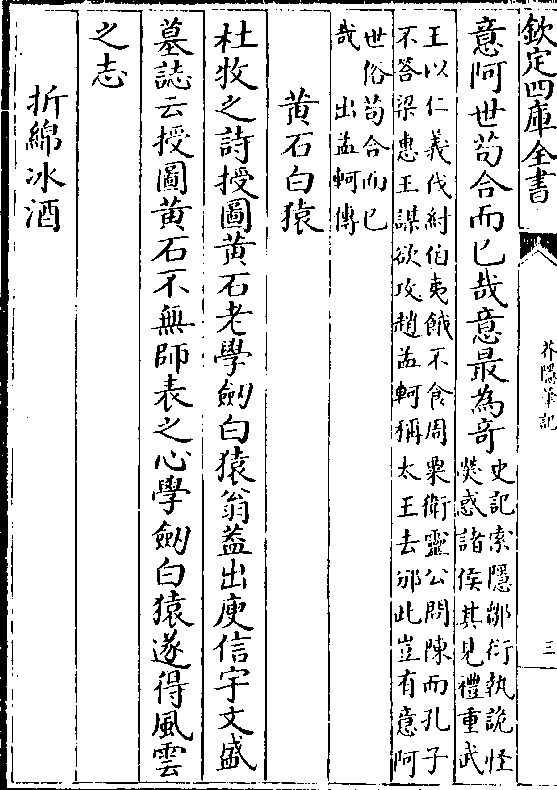 欽定四庫全書
芥隱筆記
三
意阿世茍合而已哉意最為奇
史記索隱鄒衍執詭怪
熒惑諸侯其見禮重武
王以仁義伐紂伯夷餓不食周粟衛靈公問陳而孔子
不答梁惠王謀欲攻趙孟軻稱太王去邠此豈有意阿
世俗茍合而已
哉 出孟軻傳
黄石白猿
杜牧之詩授圖黄石老學劍白猿翁葢出庾信宇文盛
墓誌云授圖黄石不無師表之心學劍白猿遂得風雲
之志
折綿冰酒